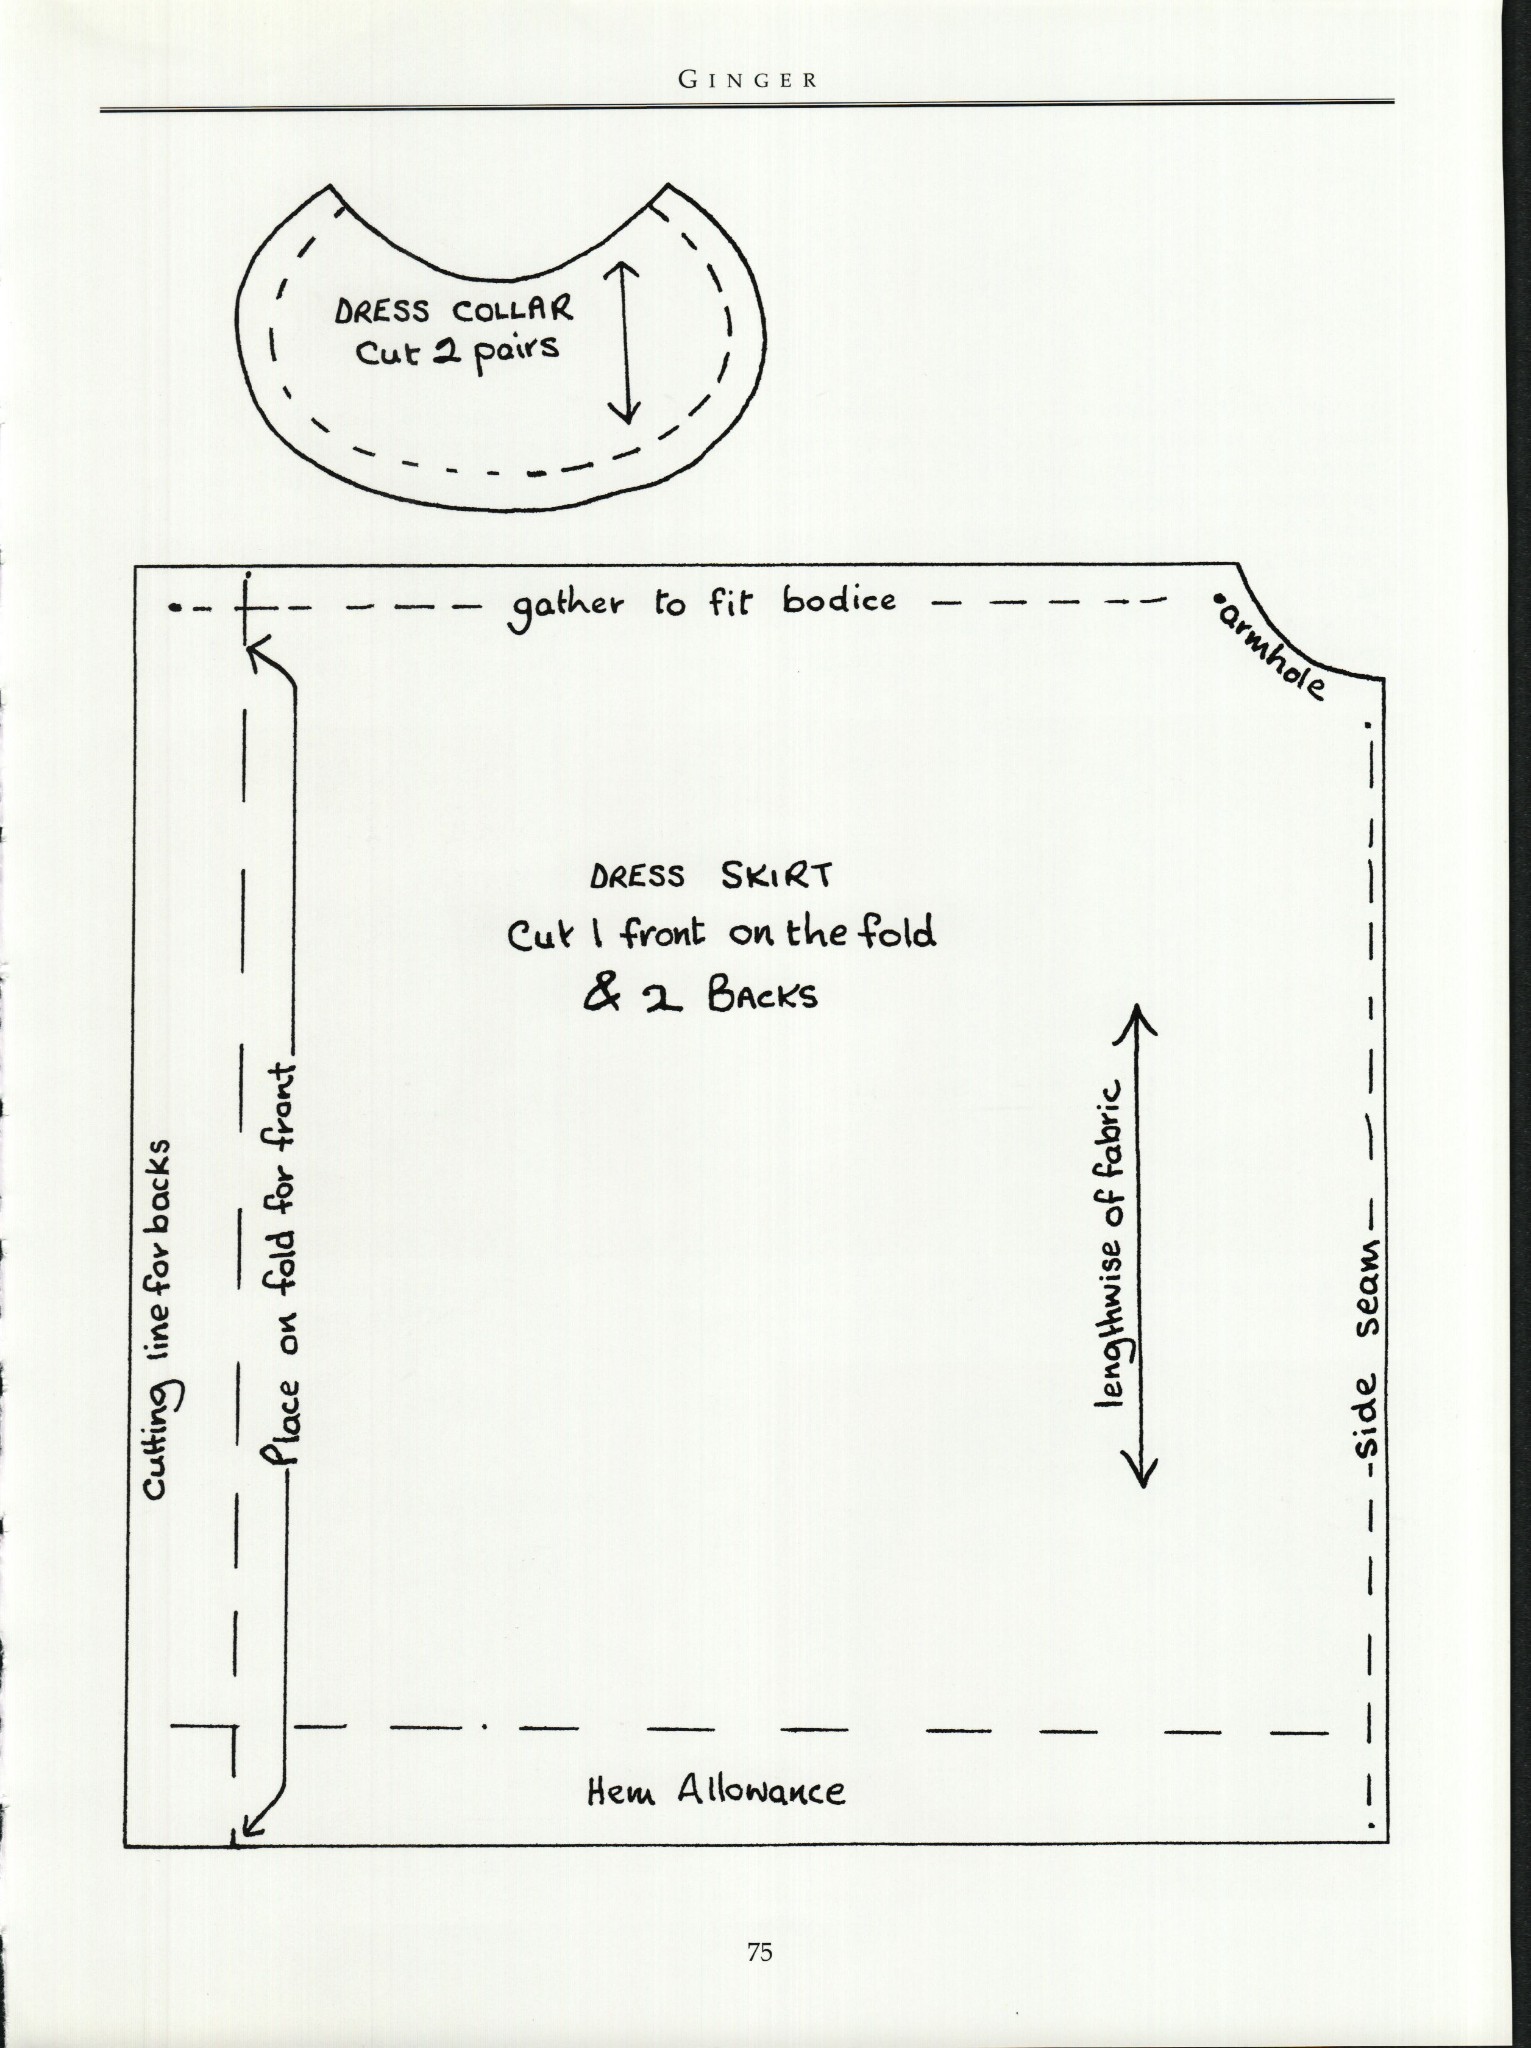 GINGER
DRESS COLLAR
Cut 2 pairs
gather to fit bodice
armhole
DRESS SKIRT
Cut 1 front on the fold
& 2 BACKS
Cutting line for backs
Place on fold for front
lengthwise of fabric
side seam
Hem Allowance
75